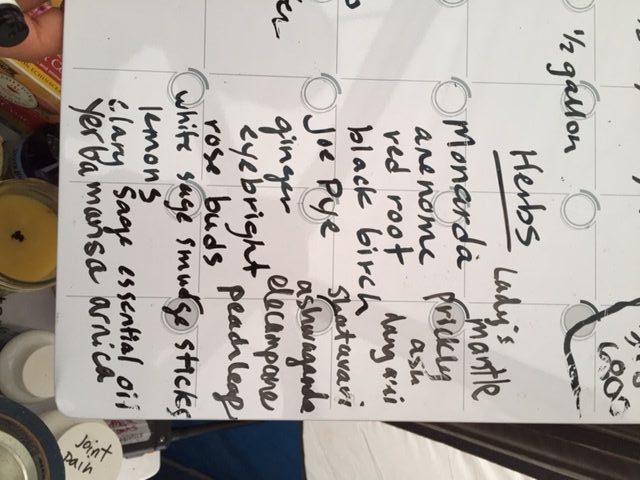 1/2 gallon
Herbs
Lady's mantle
Monarda
prickly ash
anenome
red root
longani
black birch
shatavari
Joe Pye
ashwaganda
ginger
elecampane
eyebright
peachleaf
rose buds
white sage smudge sticks
lemons
clary sage essential oil
yerba mansa
arnica
Joint
pain